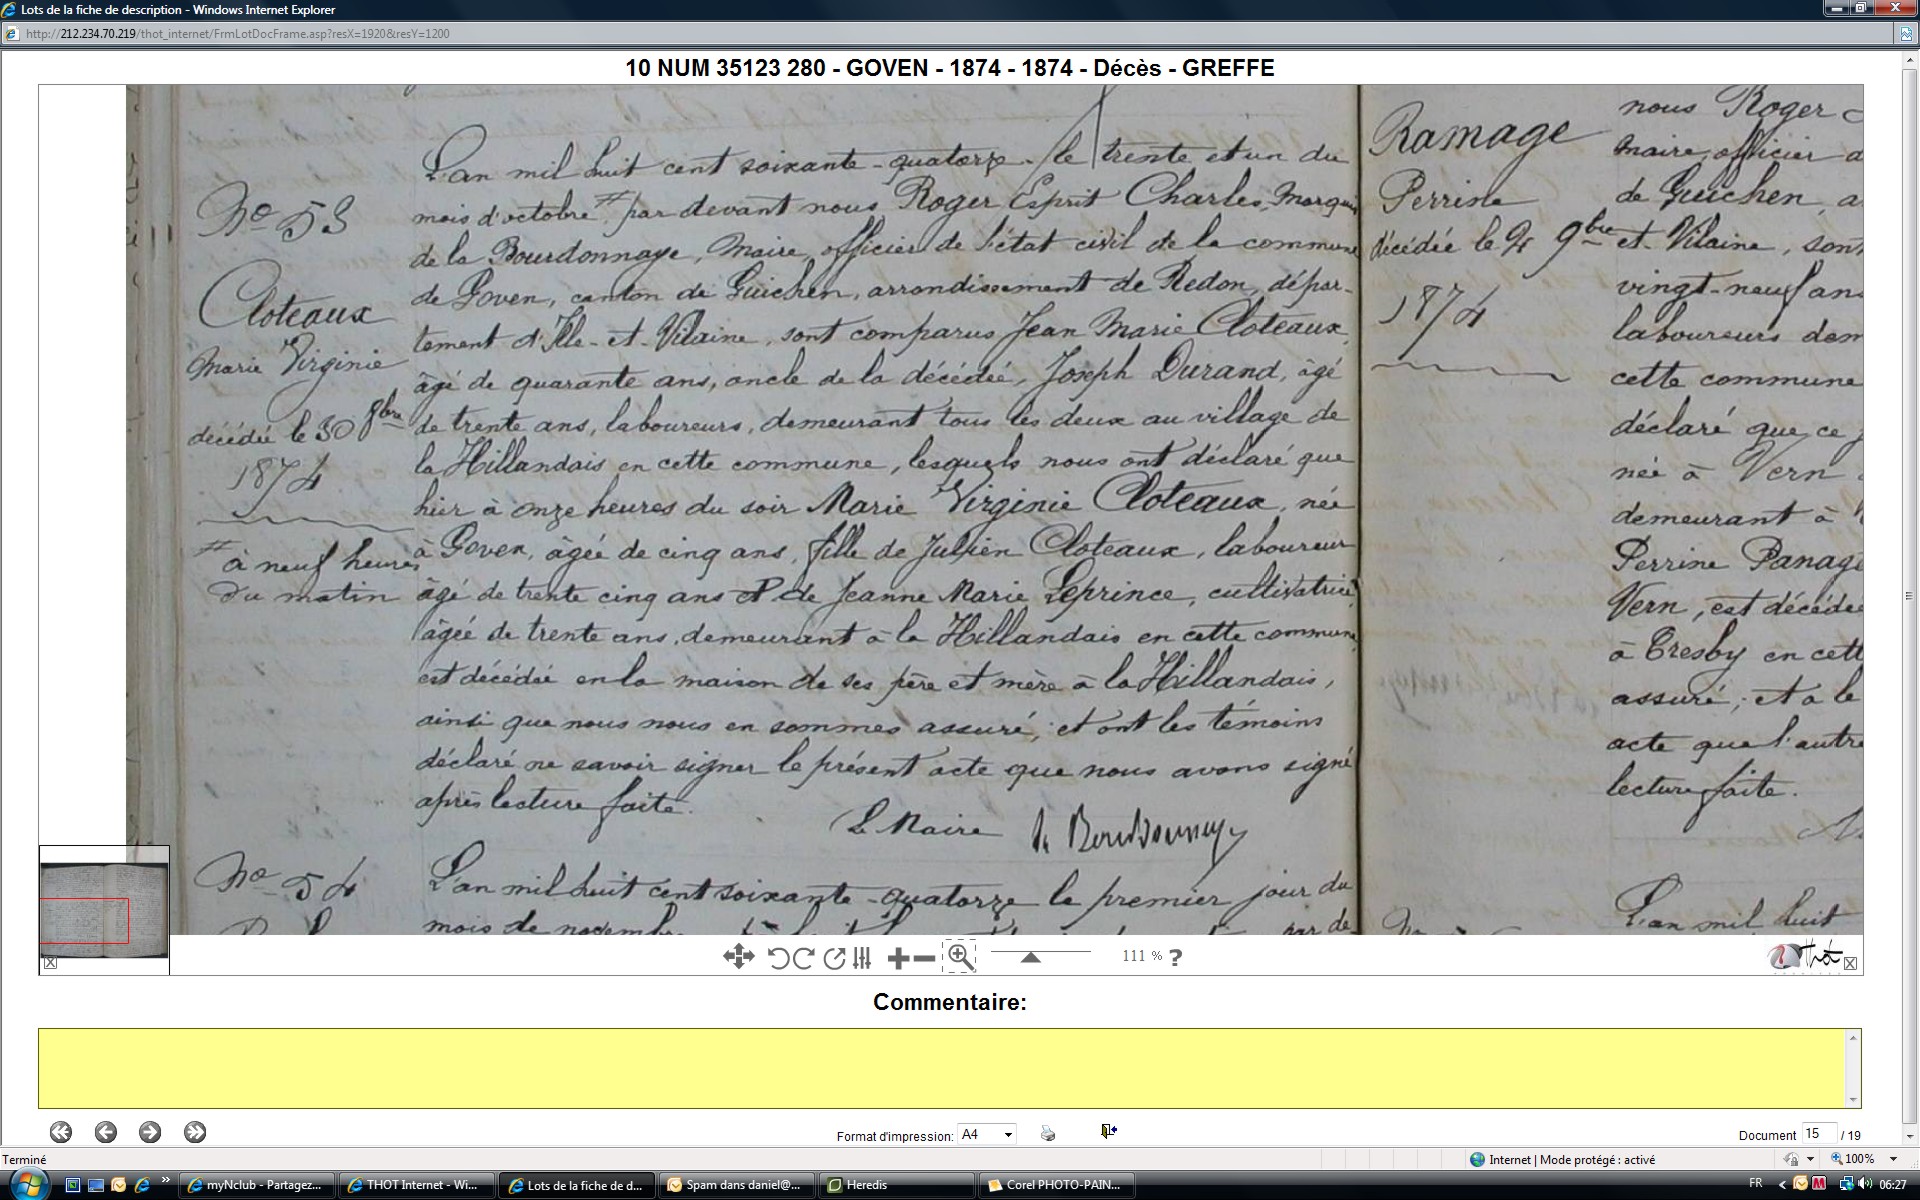 Lots de la fiche de description - Windows Internet Explorer
http://212.234.70.219/thot_internet/FrmLotDocFrame.asp?resX=1920&resY=1200
10 NUM 35123 280 - GOVEN - 1874 - 1874 - Décès - GREFFE
No 53
Cloteaux
Marie Virginie
décédée le 30 8bre
1874
# à neuf heures
du matin
L'an mil huit cent soixante-quatorze, le trente et un du
mois d'octobre # par devant nous Roger Esprit Charles, Marquis
de la Bourdonnaye, Maire, officier de l'état civil de la commune
de Goven, canton de Guichen, arrondissement de Redon, dépar-
tement d'Ille-et-Vilaine, sont comparus Jean Marie Cloteaux,
âgé de quarante ans, oncle de la décédée, Joseph Durand, âgé
de trente ans, laboureurs, demeurant tous les deux au village de
la Hillandais en cette commune, lesquels nous ont déclaré que
hier à onze heures du soir Marie Virginie Cloteaux, née
à Goven, âgée de cinq ans, fille de Julien Cloteaux, laboureur
âgé de trente cinq ans et de Jeanne Marie Leprince, cultivatrice,
âgée de trente ans, demeurant à la Hillandais en cette commune,
est décédée en la maison de ses père et mère à la Hillandais,
ainsi que nous nous en sommes assuré; et ont les témoins
déclaré ne savoir signer le présent acte que nous avons signé
après lecture faite.
Le Maire de Bourdonnaye
No 54
L'an mil huit cent soixante-quatorze le premier jour du
mois de novembre par de
Ramage
Perrine
décédée le 9bre
1874
nous Roger
Maire, officier
de Guichen, a
et-Vilaine, sont
vingt-neuf ans
laboureurs dem
cette commune
déclaré que ce
née à Vern
demeurant à
Perrine Panage
Vern, est décédée
à Tresby en cett
assuré; et a le
acte que l'autre
lecture faite.
L'an mil huit
111 % ?
Thot
Commentaire:
Format d'impression: A4
Document 15 / 19
Terminé
Internet | Mode protégé : activé
100%
myNclub - Partagez...
THOT Internet - Wi...
Lots de la fiche de d...
Spam dans daniel@...
Heredis
Corel PHOTO-PAIN...
FR
06:27